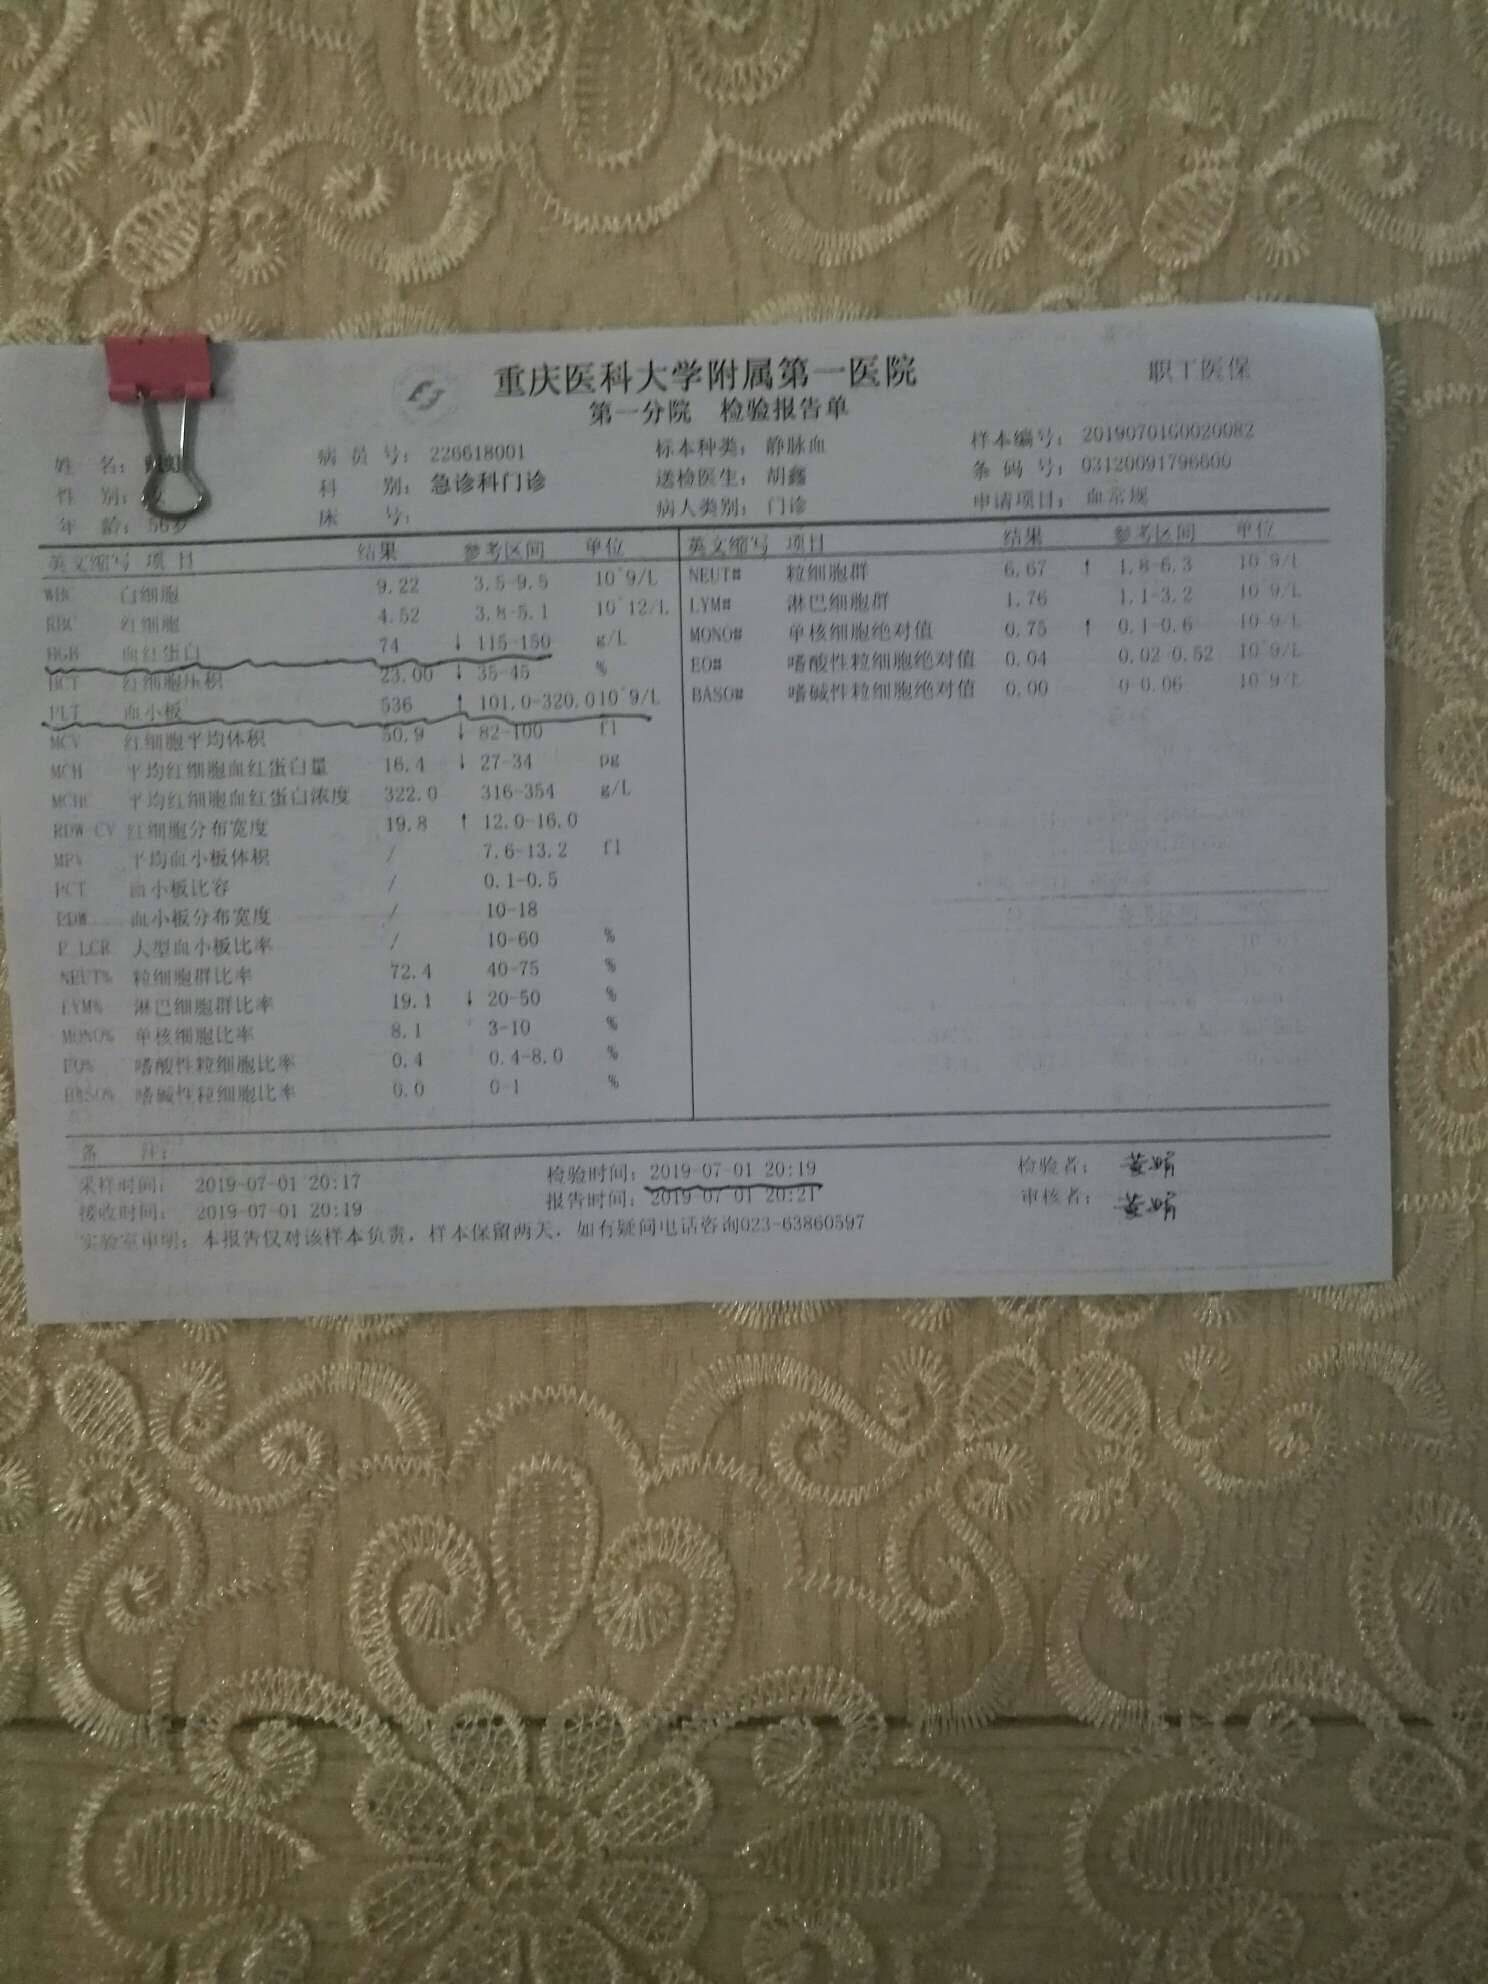 重庆医科大学附属第一医院
职工医保
第一分院 检验报告单
姓 名: 病 员 号: 226618001 标本种类: 静脉血 样本编号: 20190701G0020082
性 别: 科 别: 急诊科门诊 送检医生: 胡鑫 条 码 号: 03120091796600
年 龄: 56岁 床 号: 病人类别: 门诊 申请项目: 血常规
英文缩写 项 目 结果 参考区间 单位 英文缩写 项目 结果 参考区间 单位
WBC 白细胞 9.22 3.5-9.5 10^9/L NEUT# 粒细胞群 6.67 ↑ 1.8-6.3 10^9/L
RBC 红细胞 4.52 3.8-5.1 10^12/L LYM# 淋巴细胞群 1.76 1.1-3.2 10^9/L
HGB 血红蛋白 74 ↓ 115-150 g/L MONO# 单核细胞绝对值 0.75 ↑ 0.1-0.6 10^9/L
HCT 红细胞压积 23.00 ↓ 35-45 % EO# 嗜酸性粒细胞绝对值 0.04 0.02-0.52 10^9/L
PLT 血小板 536 ↑ 101.0-320.0 10^9/L BASO# 嗜碱性粒细胞绝对值 0.00 0-0.06 10^9/L
MCV 红细胞平均体积 50.9 ↓ 82-100 fl
MCH 平均红细胞血红蛋白量 16.4 ↓ 27-34 pg
MCHC 平均红细胞血红蛋白浓度 322.0 316-354 g/L
RDW-CV 红细胞分布宽度 19.8 ↑ 12.0-16.0
MPV 平均血小板体积 / 7.6-13.2 fl
PCT 血小板比容 / 0.1-0.5
PDW 血小板分布宽度 / 10-18
P-LCR 大型血小板比率 / 10-60 %
NEUT% 粒细胞群比率 72.4 40-75 %
LYM% 淋巴细胞群比率 19.1 ↓ 20-50 %
MONO% 单核细胞比率 8.1 3-10 %
EO% 嗜酸性粒细胞比率 0.4 0.4-8.0 %
BASO% 嗜碱性粒细胞比率 0.0 0-1 %
备 注:
采样时间: 2019-07-01 20:17 检验时间: 2019-07-01 20:19 检验者:
接收时间: 2019-07-01 20:19 报告时间: 2019-07-01 20:21 审核者:
实验室申明: 本报告仅对该样本负责, 样本保留两天. 如有疑问电话咨询023-63860597